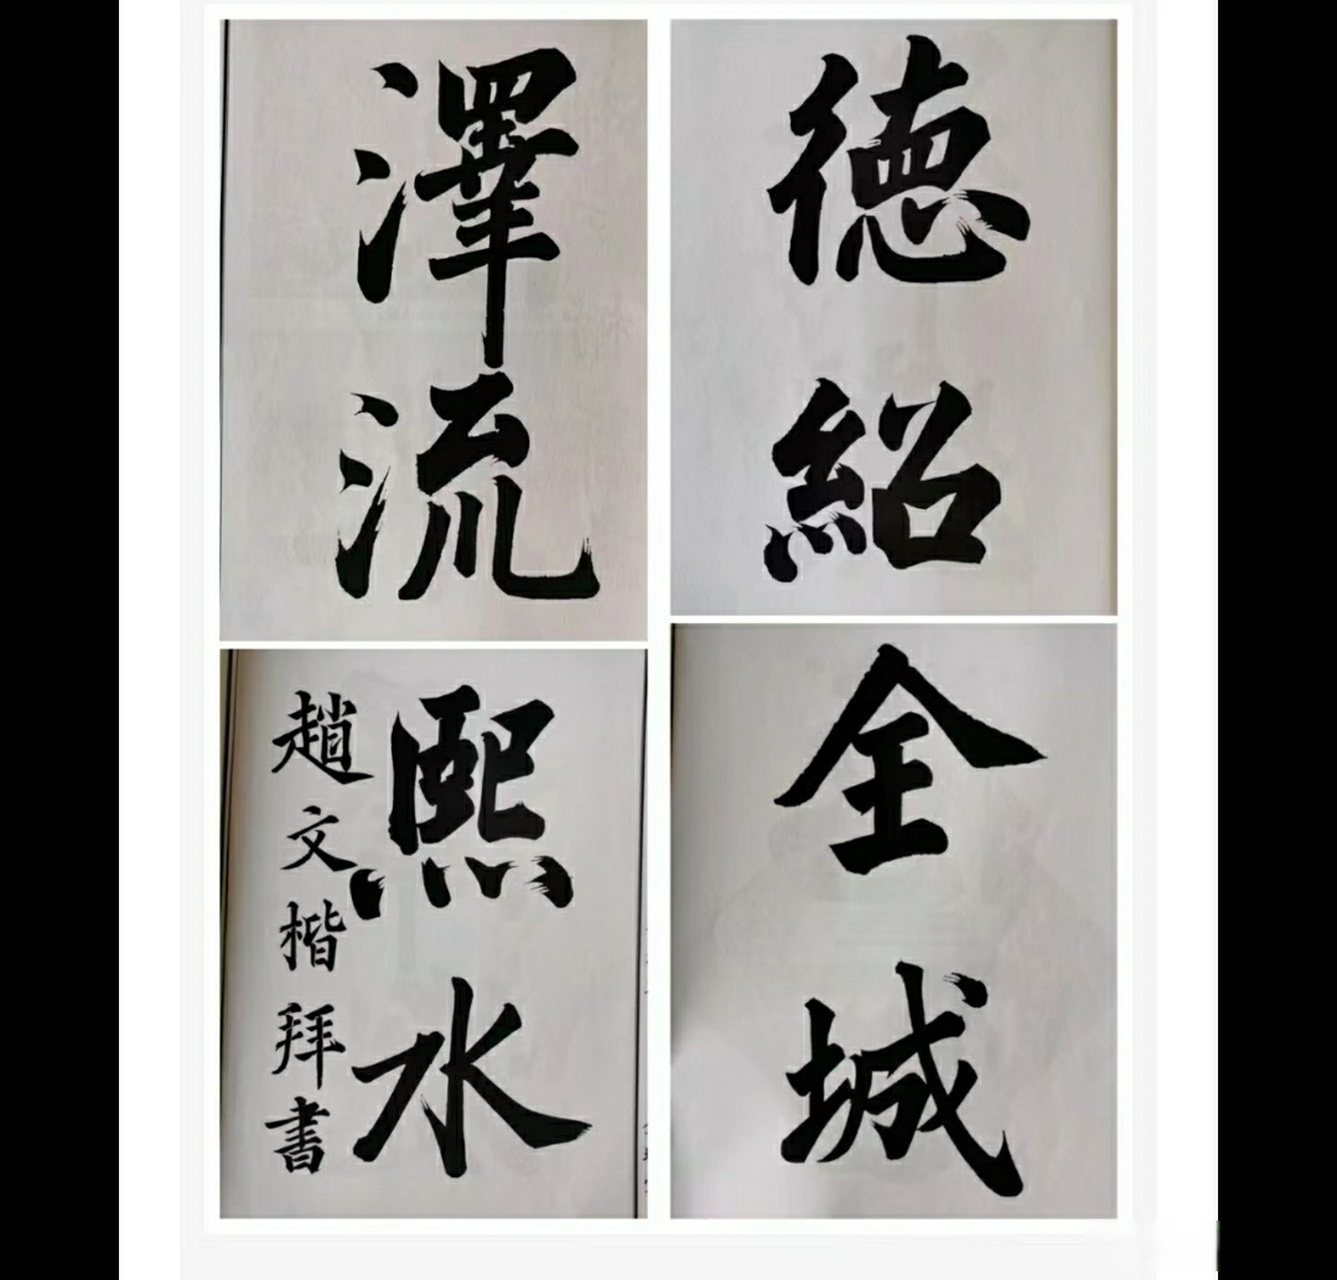 德紹全城
澤流熙水
趙文楷拜書